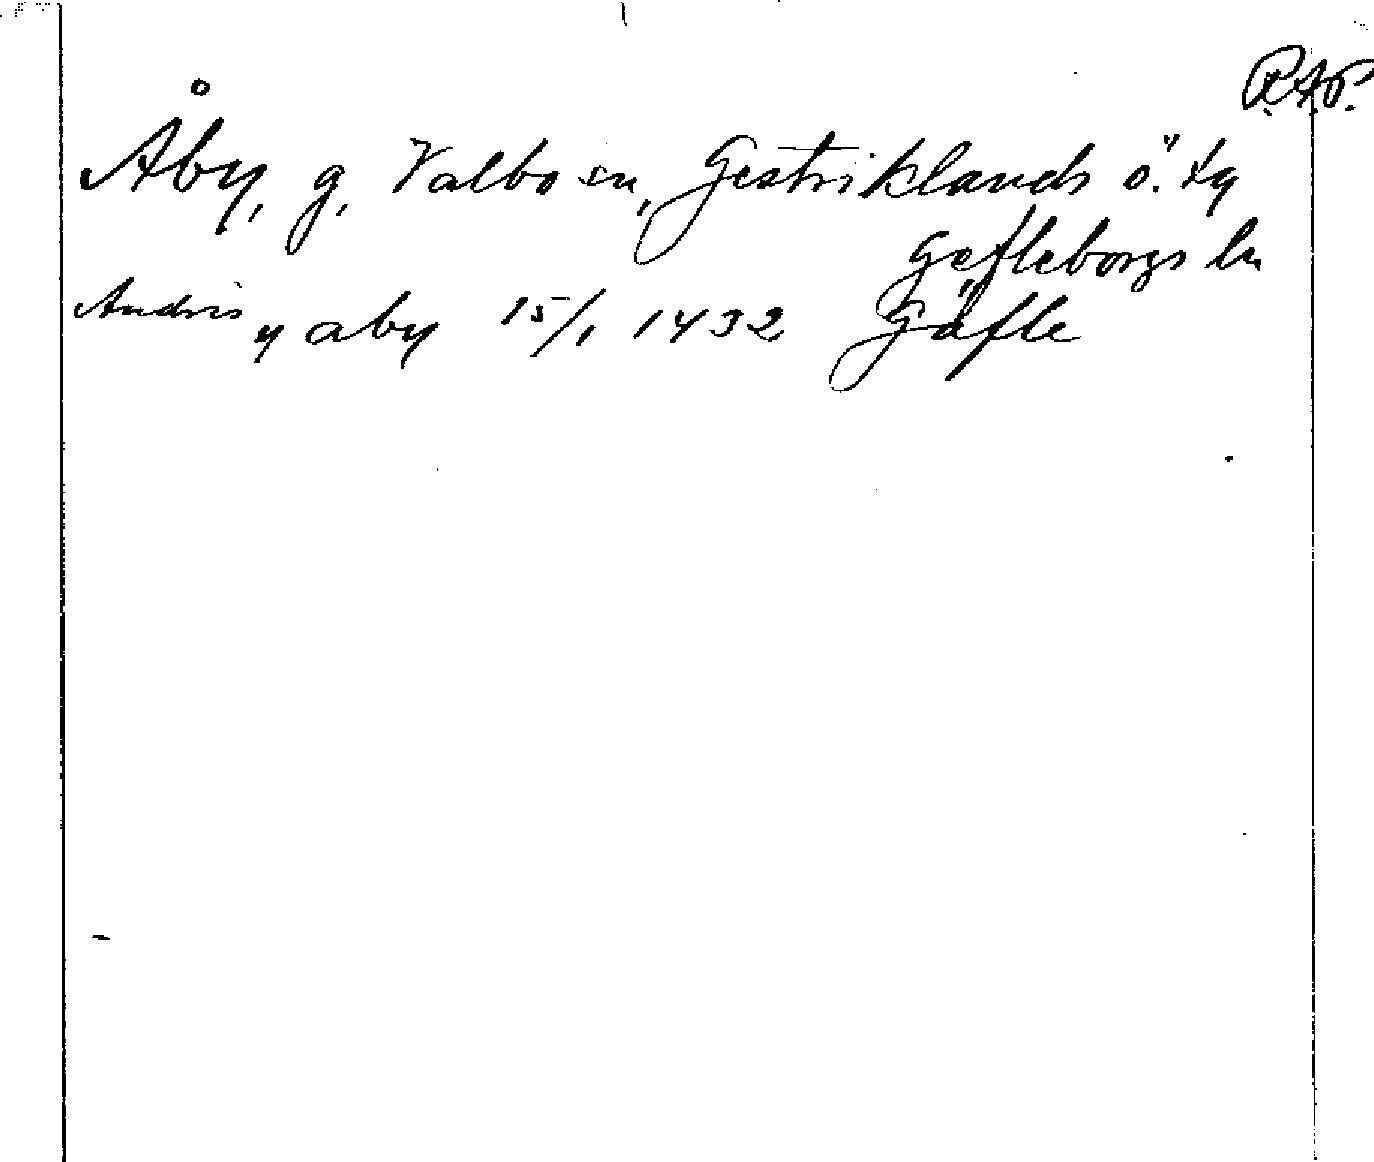 R.A.P.
Åby, g, Valbo sn, Gestriklands ö. tg
Gefleborgs ln
Andris y aby 15/1 1432 Gäfle